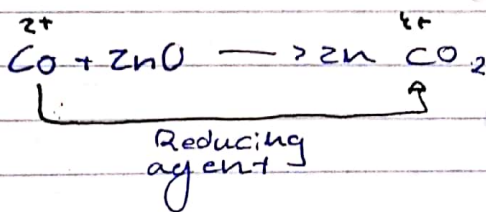 2+ 4+
Co + ZnO —> Zn CO2
Reducing
agent